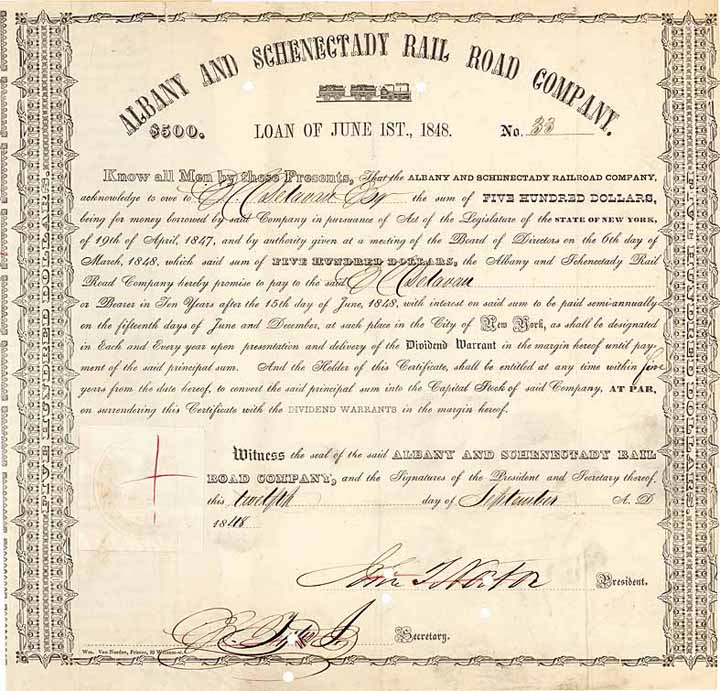 ALBANY AND SCHENECTADY RAIL ROAD COMPANY.
$500. LOAN OF JUNE 1ST., 1848. No. 33
Know all Men by these Presents, That the ALBANY AND SCHENECTADY RAILROAD COMPANY,
acknowledge to owe to E C Delavan Esq the sum of FIVE HUNDRED DOLLARS,
being for money borrowed by said Company in pursuance of Act of the Legislature of the STATE OF NEW YORK,
of 19th of April, 1847, and by authority given at a meeting of the Board of Directors on the 6th day of
March, 1848, which said sum of FIVE HUNDRED DOLLARS, the Albany and Schenectady Rail
Road Company hereby promise to pay to the said E C Delavan
or Bearer in Ten Years after the 15th day of June, 1848, with interest on said sum to be paid semi-annually
on the fifteenth days of June and December, at such place in the City of New York, as shall be designated
in Each and Every year upon presentation and delivery of the Dividend Warrant in the margin hereof until pay-
ment of the said principal sum. And the Holder of this Certificate, shall be entitled at any time within five
years from the date hereof, to convert the said principal sum into the Capital Stock of said Company, AT PAR,
on surrendering this Certificate with the DIVIDEND WARRANTS in the margin hereof.
Witness the seal of the said ALBANY AND SCHENECTADY RAIL
ROAD COMPANY, and the Signatures of the President and Secretary thereof,
this twelfth day of September A. D
1848
John T Norton President.
Secretary.
Wm. Van Norden, Printer, 39 William-st.